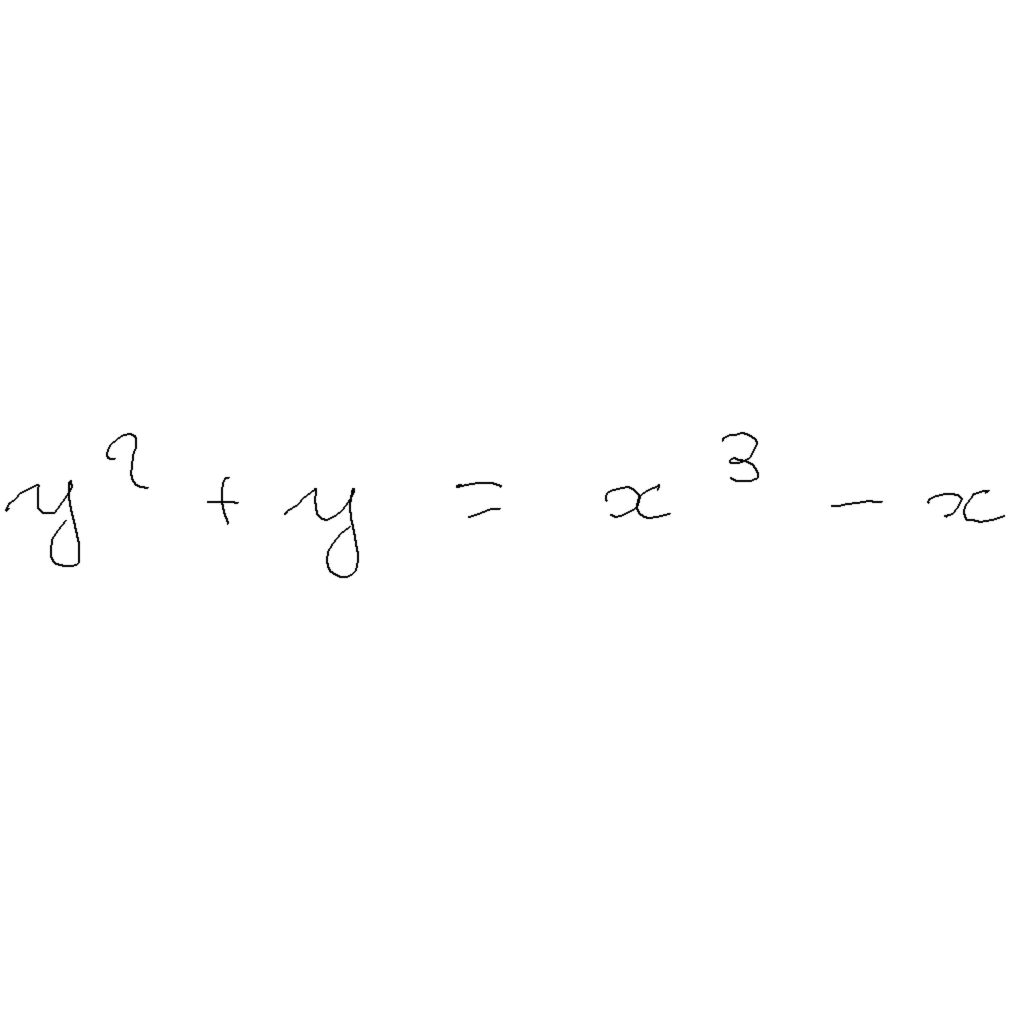 y² + y = x³ - x